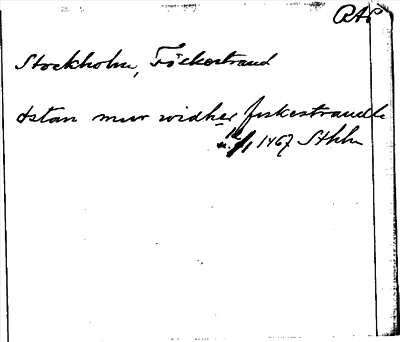 RAP
Stockholm, Fiskestrand
østan mur widher fiskestrandh
1467 Sthlm